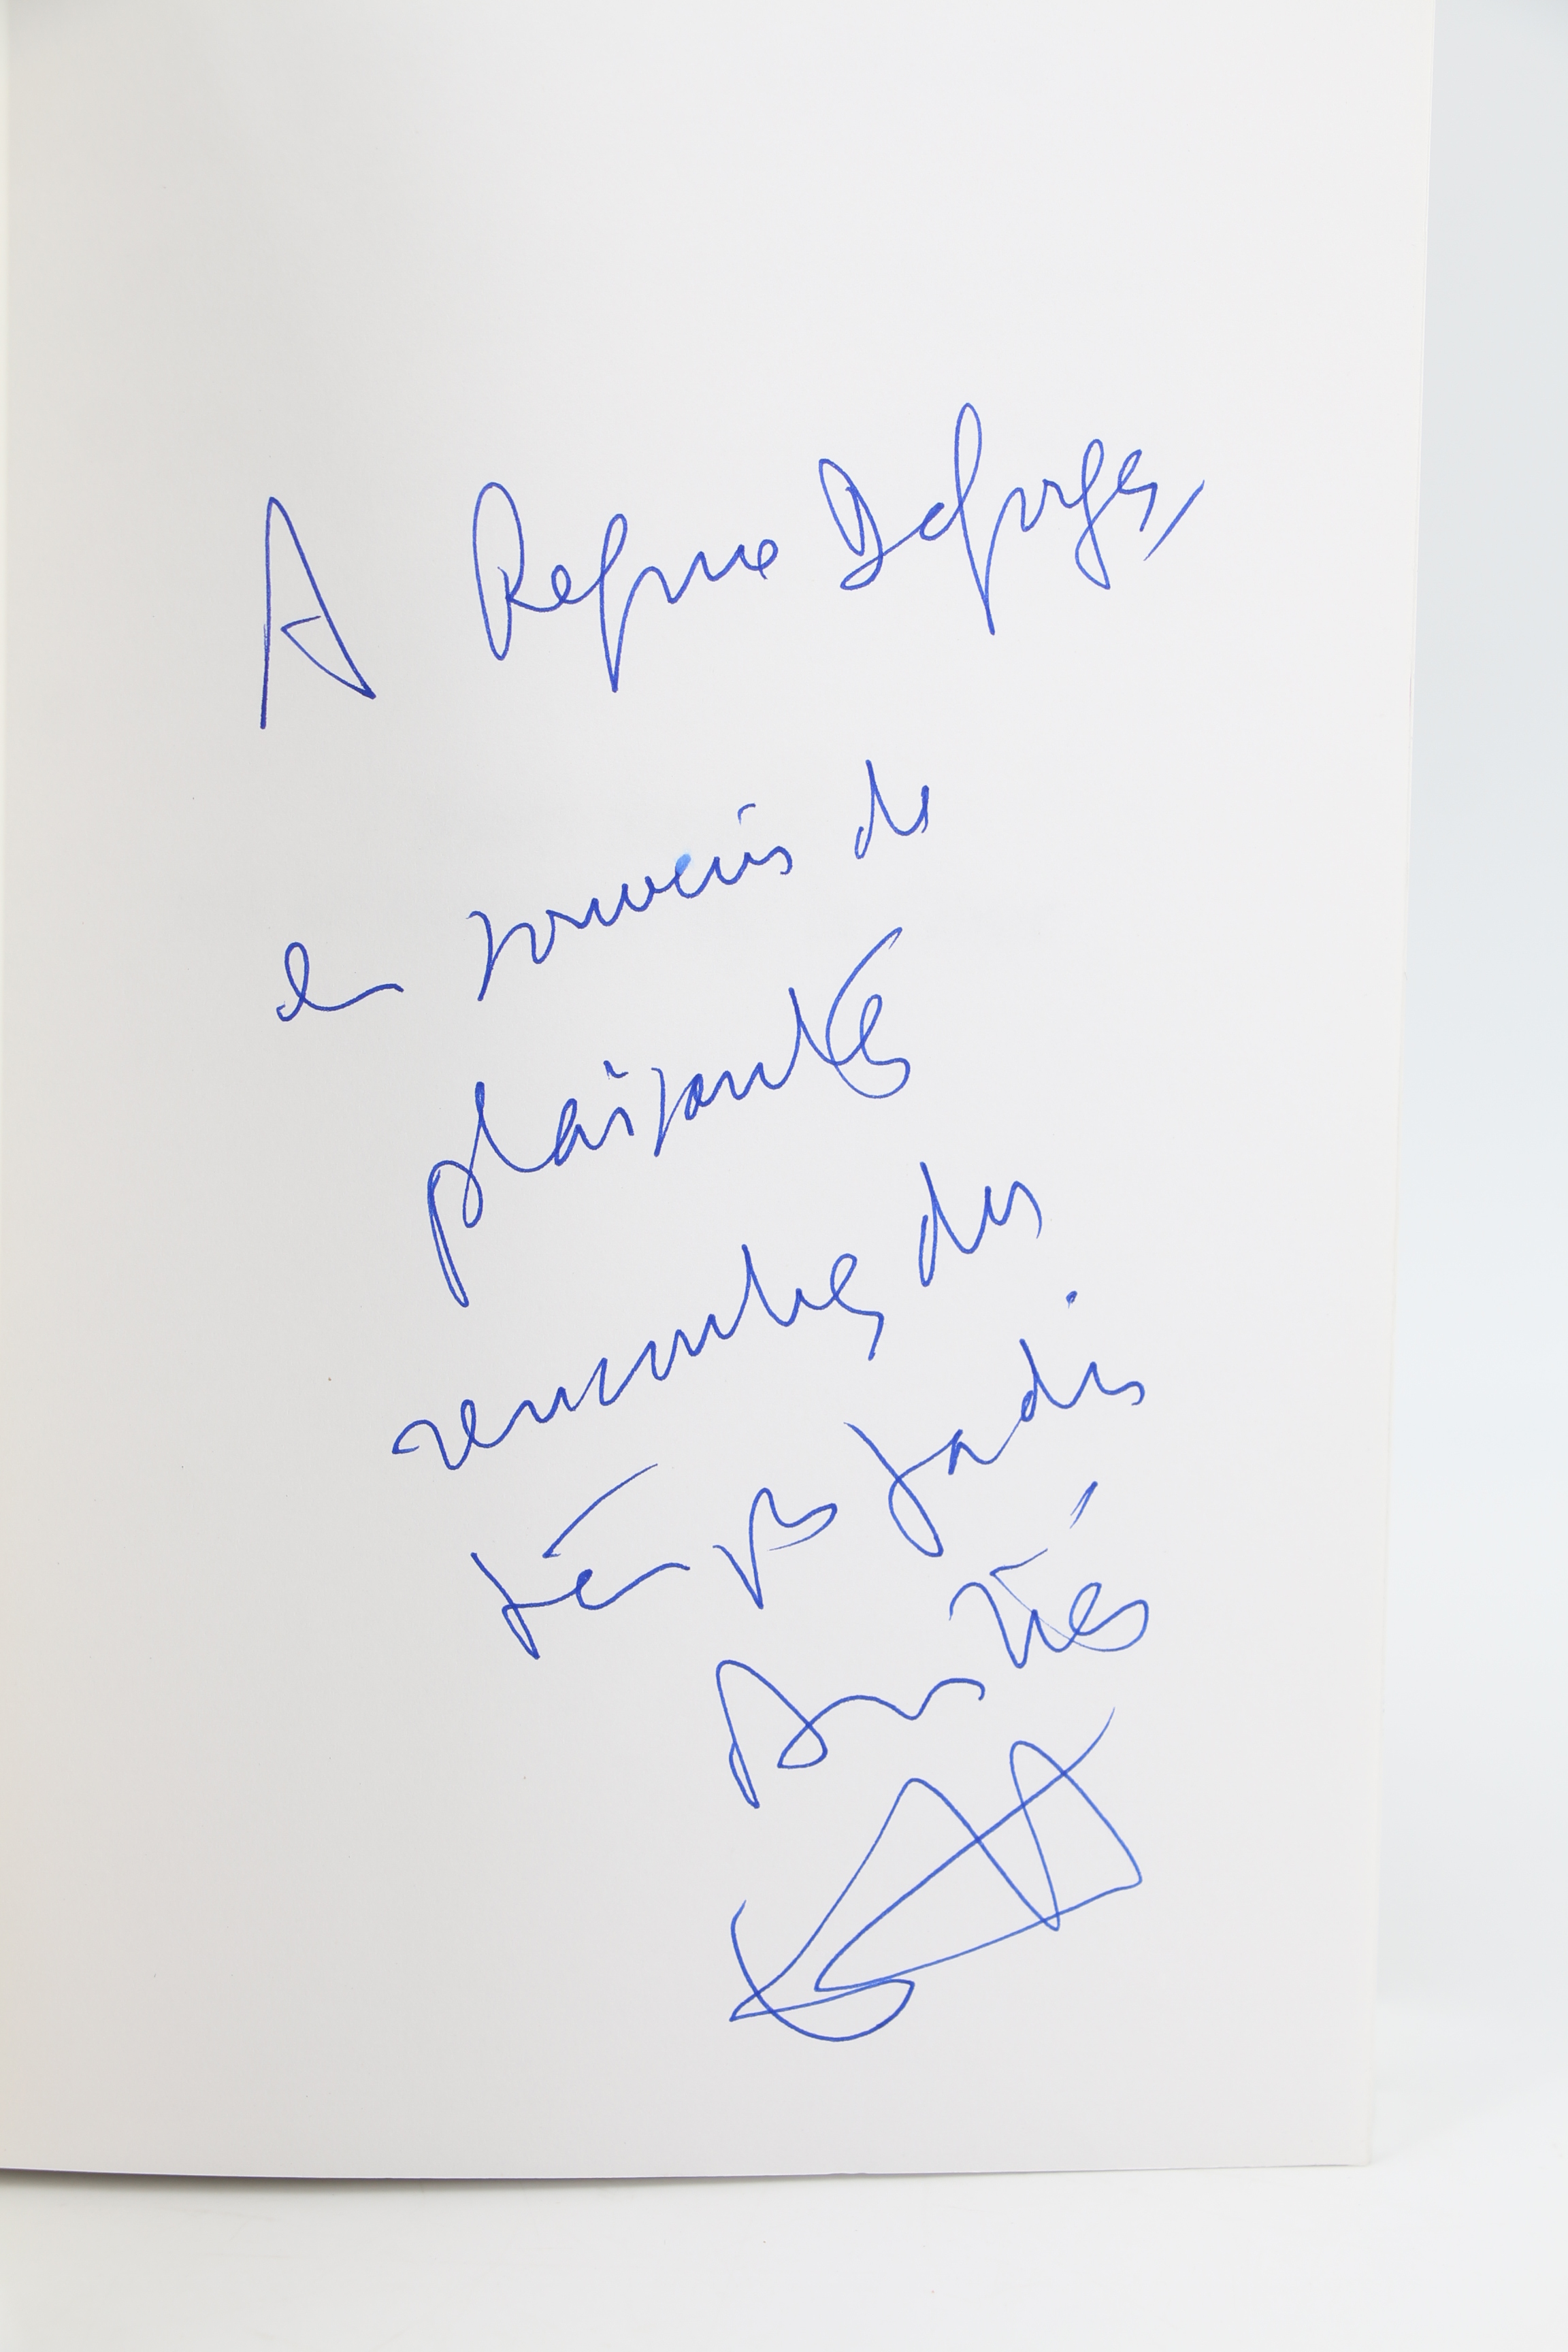 A Régine Deforges,
en souvenir de
plaisantes
rencontres du
temps jadis
Amitiés